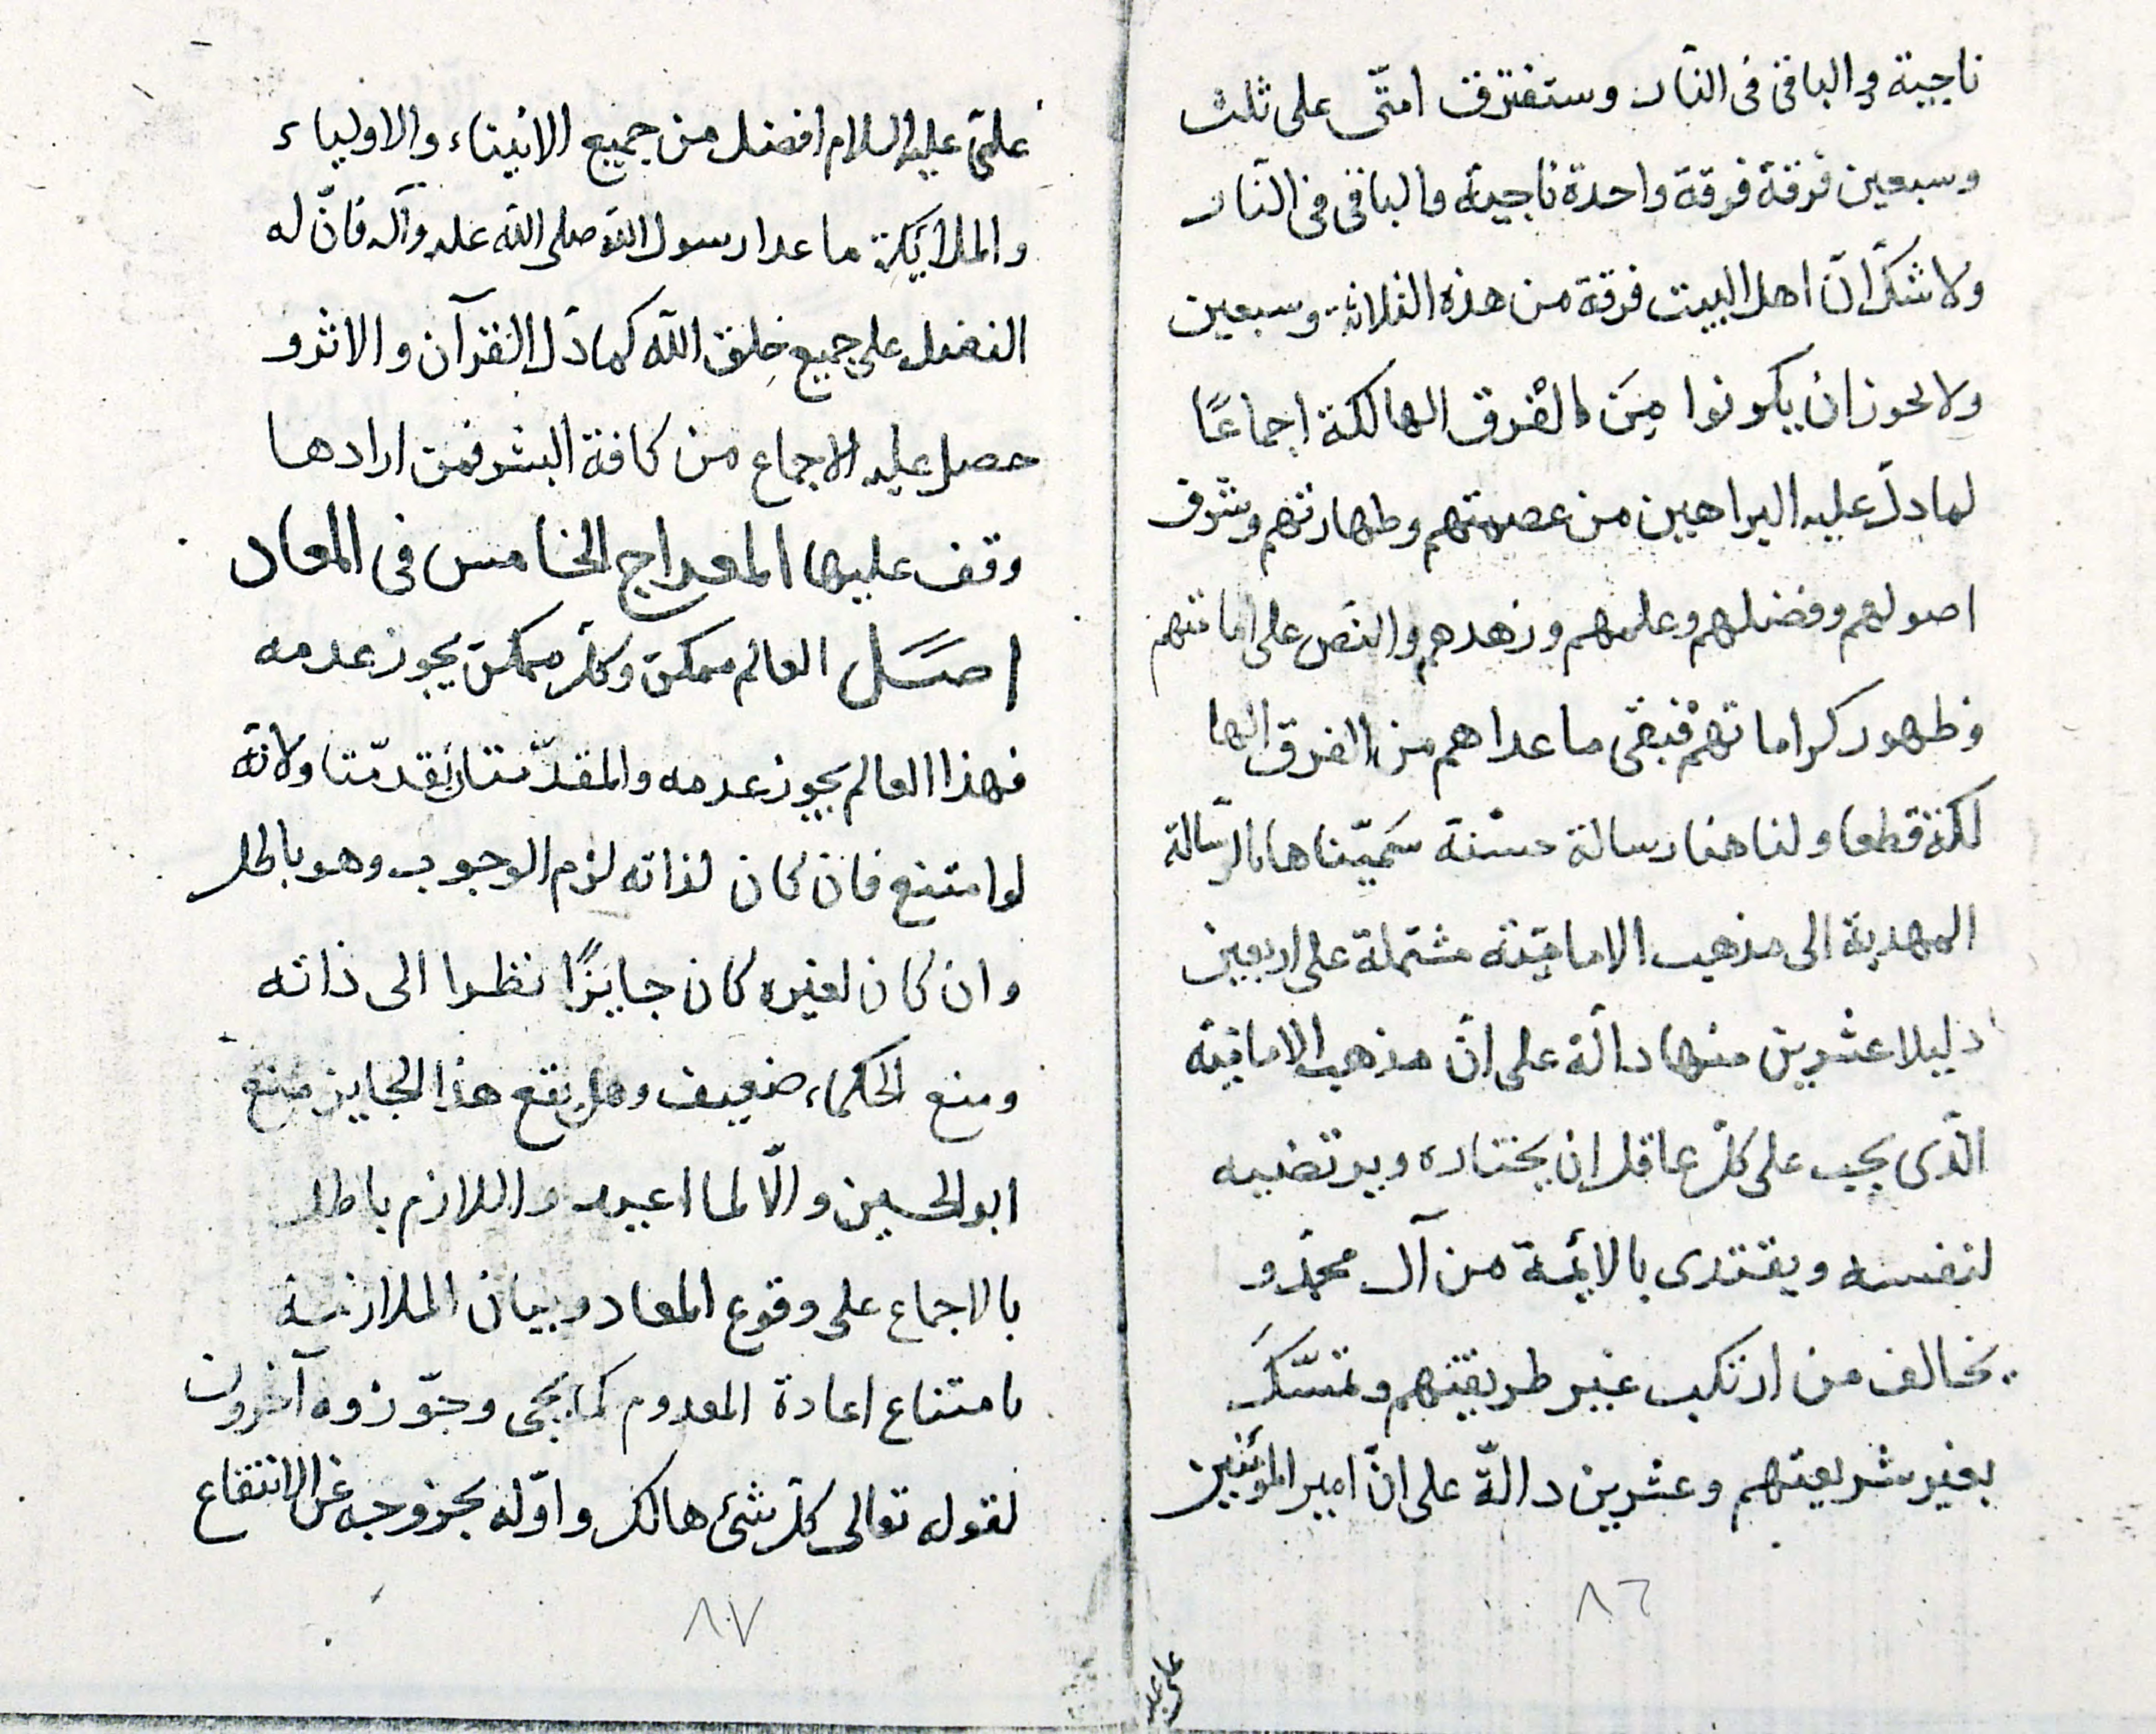 ناجية والباقى فى النار وستفترق امتّى على ثلث
وسبعين فرقة فرقة واحدة ناجية والباقى فى النّار
ولا شكّ انّ اهل البيت فرقة من هذه الثلاثة وسبعين
ولا يحوز ان يكونوا مِنَ الفرق الهالكة اجماعًا
لما دلّ عليه البراهين من عصمتهم وطهارتهم وشرف
اصولهم وفضلهم وعلمهم وزهدهم والنص على امامتهم
وظهور كراماتهم فبقى ما عداهم من الفرق الها
لكة قطعا ولنا هنا رسالة حسنة سَمّيناها بالرّسالة
المهدية الى مذهب الاماميّة مشتملة على اربعين
دليلا عشرين منها دالّة على انّ مذهب الاماميّة
الّذى يجب على كلّ عاقل ان يختاره ويرتضيه
لنفسه ويقتدى بالائمة من آل محمّد و
يخالف من ارتكب غير طريقتهم وتمسّكَ
بغير شريعتهم وعشرين دالّة على انّ امير المؤمنين
٨٦
علىّ عليه السلام افضل من جميع الانبياء والاولياء
والملائكة ما عدا رسول الله صلى الله عليه وآله فانّ له
الفضل على جميع خلق الله كما دَلّ القرآن والاثر و
حصل عليه الاجماع من كافة البشر فمن ارادها
وقف عليها المعراج الخامس فى المعاد
اصل العالم ممكن وكلّ ممكن يجوز عدمه
فهذا العالم يجوز عدمه والمقدّمتان تقدّمتا ولانّه
لو امتنع فان كان لذاته لزم الوجوب وهو باطل
وان كان لغيره كان جايزًا نظرا الى ذاته
ومنع الحكماء ضعيف وهل يقع هذا الجايز منع
ابو الحسين والّا لما اعيد واللازم باطل
بالاجماع على وقوع المعاد وبيان الملازمة
بامتناع اعادة المعدوم كما يجى وجوّزوه آخرون
لقوله تعالى كلّ شئ هالك واوّله بخروجه عن الانتفاع
٨٧